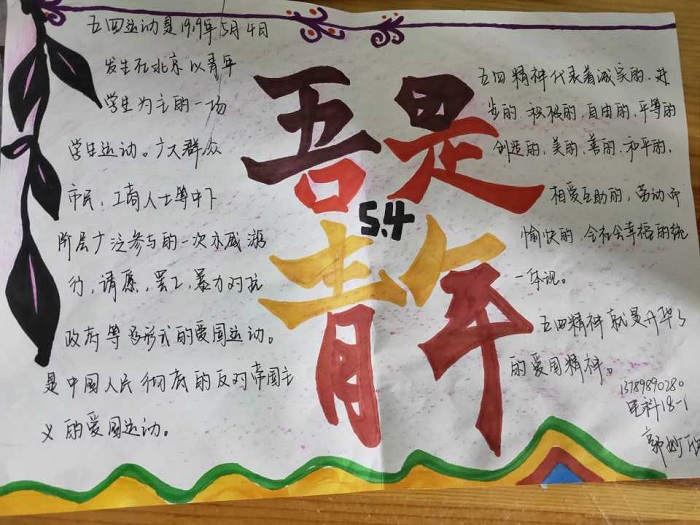 五四运动是1919年5月4日
发生在北京以青年
学生为主的一场
学生运动。广大群众
市民，工商人士等中下
阶层广泛参与的一次示威游
行，请愿，罢工，暴力对抗
政府等多形式的爱国运动。
是中国人民彻底的反对帝国主
义的爱国运动。
吾是
5.4
青年
五四精神代表着诚实的、进
步的、积极的、自由的、平等的
创造的、美的、善的、和平的、
相爱互助的，劳动而
愉快的，全社会幸福的统
一体现。
五四精神就是升华了
的爱国精神。
13789890280
电科18-1
郭